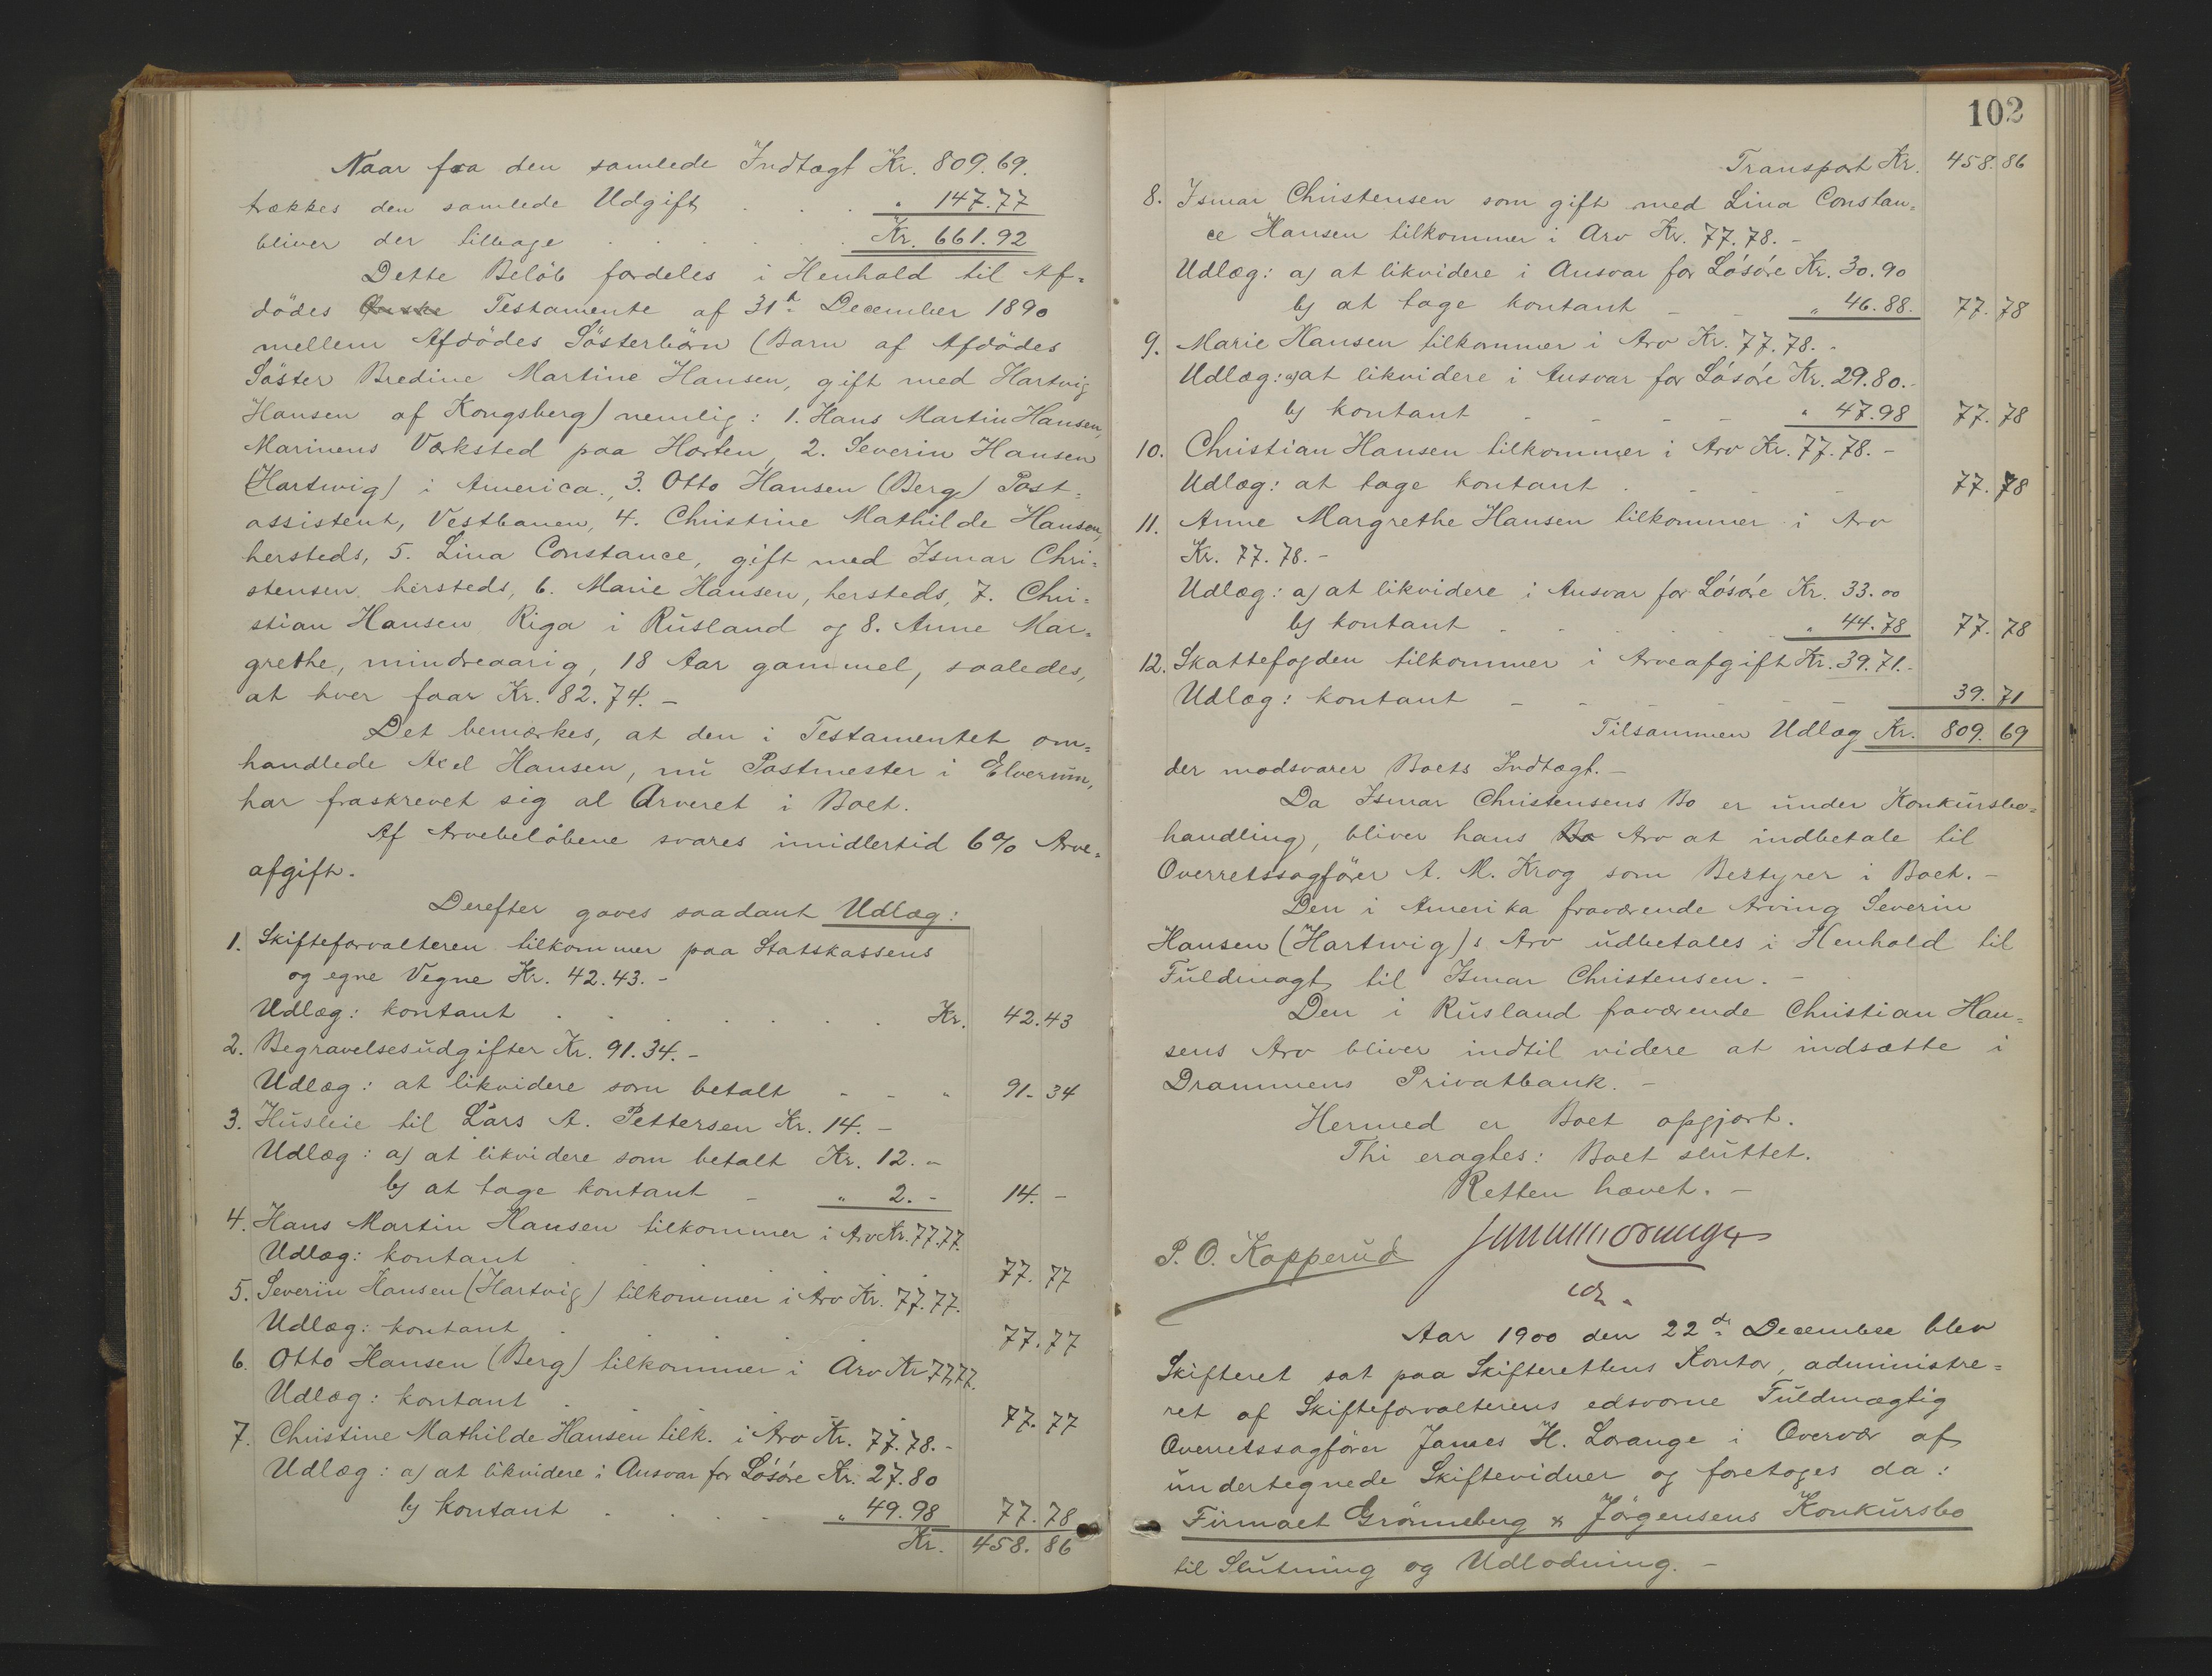 Naar fra den samlede Indtægt Kr. 809.69.
trækkes den samlede Udgift . . . " 147.77
bliver der tilbage . . . . . . Kr. 661.92
Dette Beløb fordeles i Henhold til Af=
dødes Testamente af 31te December 1890
mellem Afdødes Søsterbørn (Barn af Afdødes
Søster Bredine Martine Hansen, gift med Hartvig
Hansen af Kongsberg) nemlig: 1. Hans Martin Hansen,
Marinens Værksted paa Horten, 2. Severin Hansen
(Hartwig) i America., 3. Otto Hansen (Berg) Post=
assistent, Vestbanen, 4. Christine Mathilde Hansen,
hersteds, 5. Lina Constance, gift med Ismar Chri=
stensen hersteds, 6. Marie Hansen, hersteds, 7. Chri=
stian Hansen Riga i Rusland og 8. Anne Mar=
grethe, mindreaarig, 18 Aar gammel, saaledes,
at hver faar Kr. 82.74. –
Det bemærkes, at den i Testamentet om=
handlede Axel Hansen, nu Postmester i Elverum,
har fraskrevet sig al Arveret i Boet.
Af Arvebeløbene svares imidlertid 6% Arve=
afgift.
Derefter gaves saadant Udlæg:
1. Skifteforvalteren tilkommer paa Statskassens
og egne Vegne Kr. 42.43. –
Udlæg: kontant . . . . . . . Kr. 42.43
2. Begravelsesudgifter Kr. 91.34. –
Udlæg: at likvidere som betalt - - " 91-34
3. Husleie til Lars A. Pettersen Kr. 14. –
Udlæg: a) at likvidere som betalt Kr. 12. –
b) at tage kontant – " 2. – 14. –
4. Hans Martin Hansen tilkommer i Arv Kr. 77.77.
Udlæg: kontant . . . . . 77.77
5. Severin Hansen (Hartvig) tilkommer i Arv Kr. 77.77.
Udlæg: kontant . . . . . 77.77
6. Otto Hansen (Berg) tilkommer i Arv Kr 77,77.
Udlæg: kontant . . . . . 77.77
7. Christine Mathilde Hansen tilk. i Arv Kr. 77.78. –
Udlæg: a) at likvidere i Ansvar for Løsøre Kr. 27.80
b) kontant . . . . " 49.98 77.78
Kr. 458.86
102
Transport Kr. 458.86
8. Ismar Christensen som gift med Lina Constan=
ce Hansen tilkommer i Arv Kr. 77.78. –
Udlæg: a) at likvidere i Ansvar for Løsøre Kr. 30.90
b) at tage kontant – – " 46.88. 77.78
9. Marie Hansen tilkommer i Arv Kr. 77.78. –
Udlæg: a) at likvidere i Ansvar for Løsøre Kr. 29.80. –
b) kontant – – – – " 47.98 77.78
10. Christian Hansen tilkommer i Arv Kr. 77.78. –
Udlæg: at tage kontant . - - - 77.78
11. Anne Margrethe Hansen tilkommer i Arv
Kr. 77.78. –
Udlæg: a) at likvidere i Ansvar for Løsøre Kr. 33.00
b) kontant . . . . . " 44.78 77.78
12. Skattefogden tilkommer i Arveafgift Kr. 39.71. –
Udlæg: kontant – – – – – – 39.71
Tilsammen Udlæg Kr. 809.69
der modsvarer Boets Indtægt. –
Da Ismar Christensens Bo er under Konkursbe=
handling, bliver hans Bo Arv at indbetale til
Overretssagfører A. M. Krog som Bestyrer i Boet. –
Den i Amerika fraværende Arving Severin
Hansen (Hartwig)s Arv udbetales i Henhold til
Fuldmagt til Ismar Christensen. –
Den i Rusland fraværende Christian Han=
sens Arv bliver indtil videre at indsætte i
Drammens Privatbank. –
Hermed er Boet opgjort.
Thi eragtes: Boet sluttet.
Retten hævet. –
P. O. Kopperud
Aar 1900 den 22de December blev
Skifteret sat paa Skifterettens Kontor, administre=
ret af Skifteforvalterens edsvorne Fuldmægtig
Overretssagfører James H. Lorange i Overvær af
undertegnede Skiftevidner og foretoges da:
Firmaet Grønneberg & Jørgensens Konkursbo
til Slutning og Udlodning. –